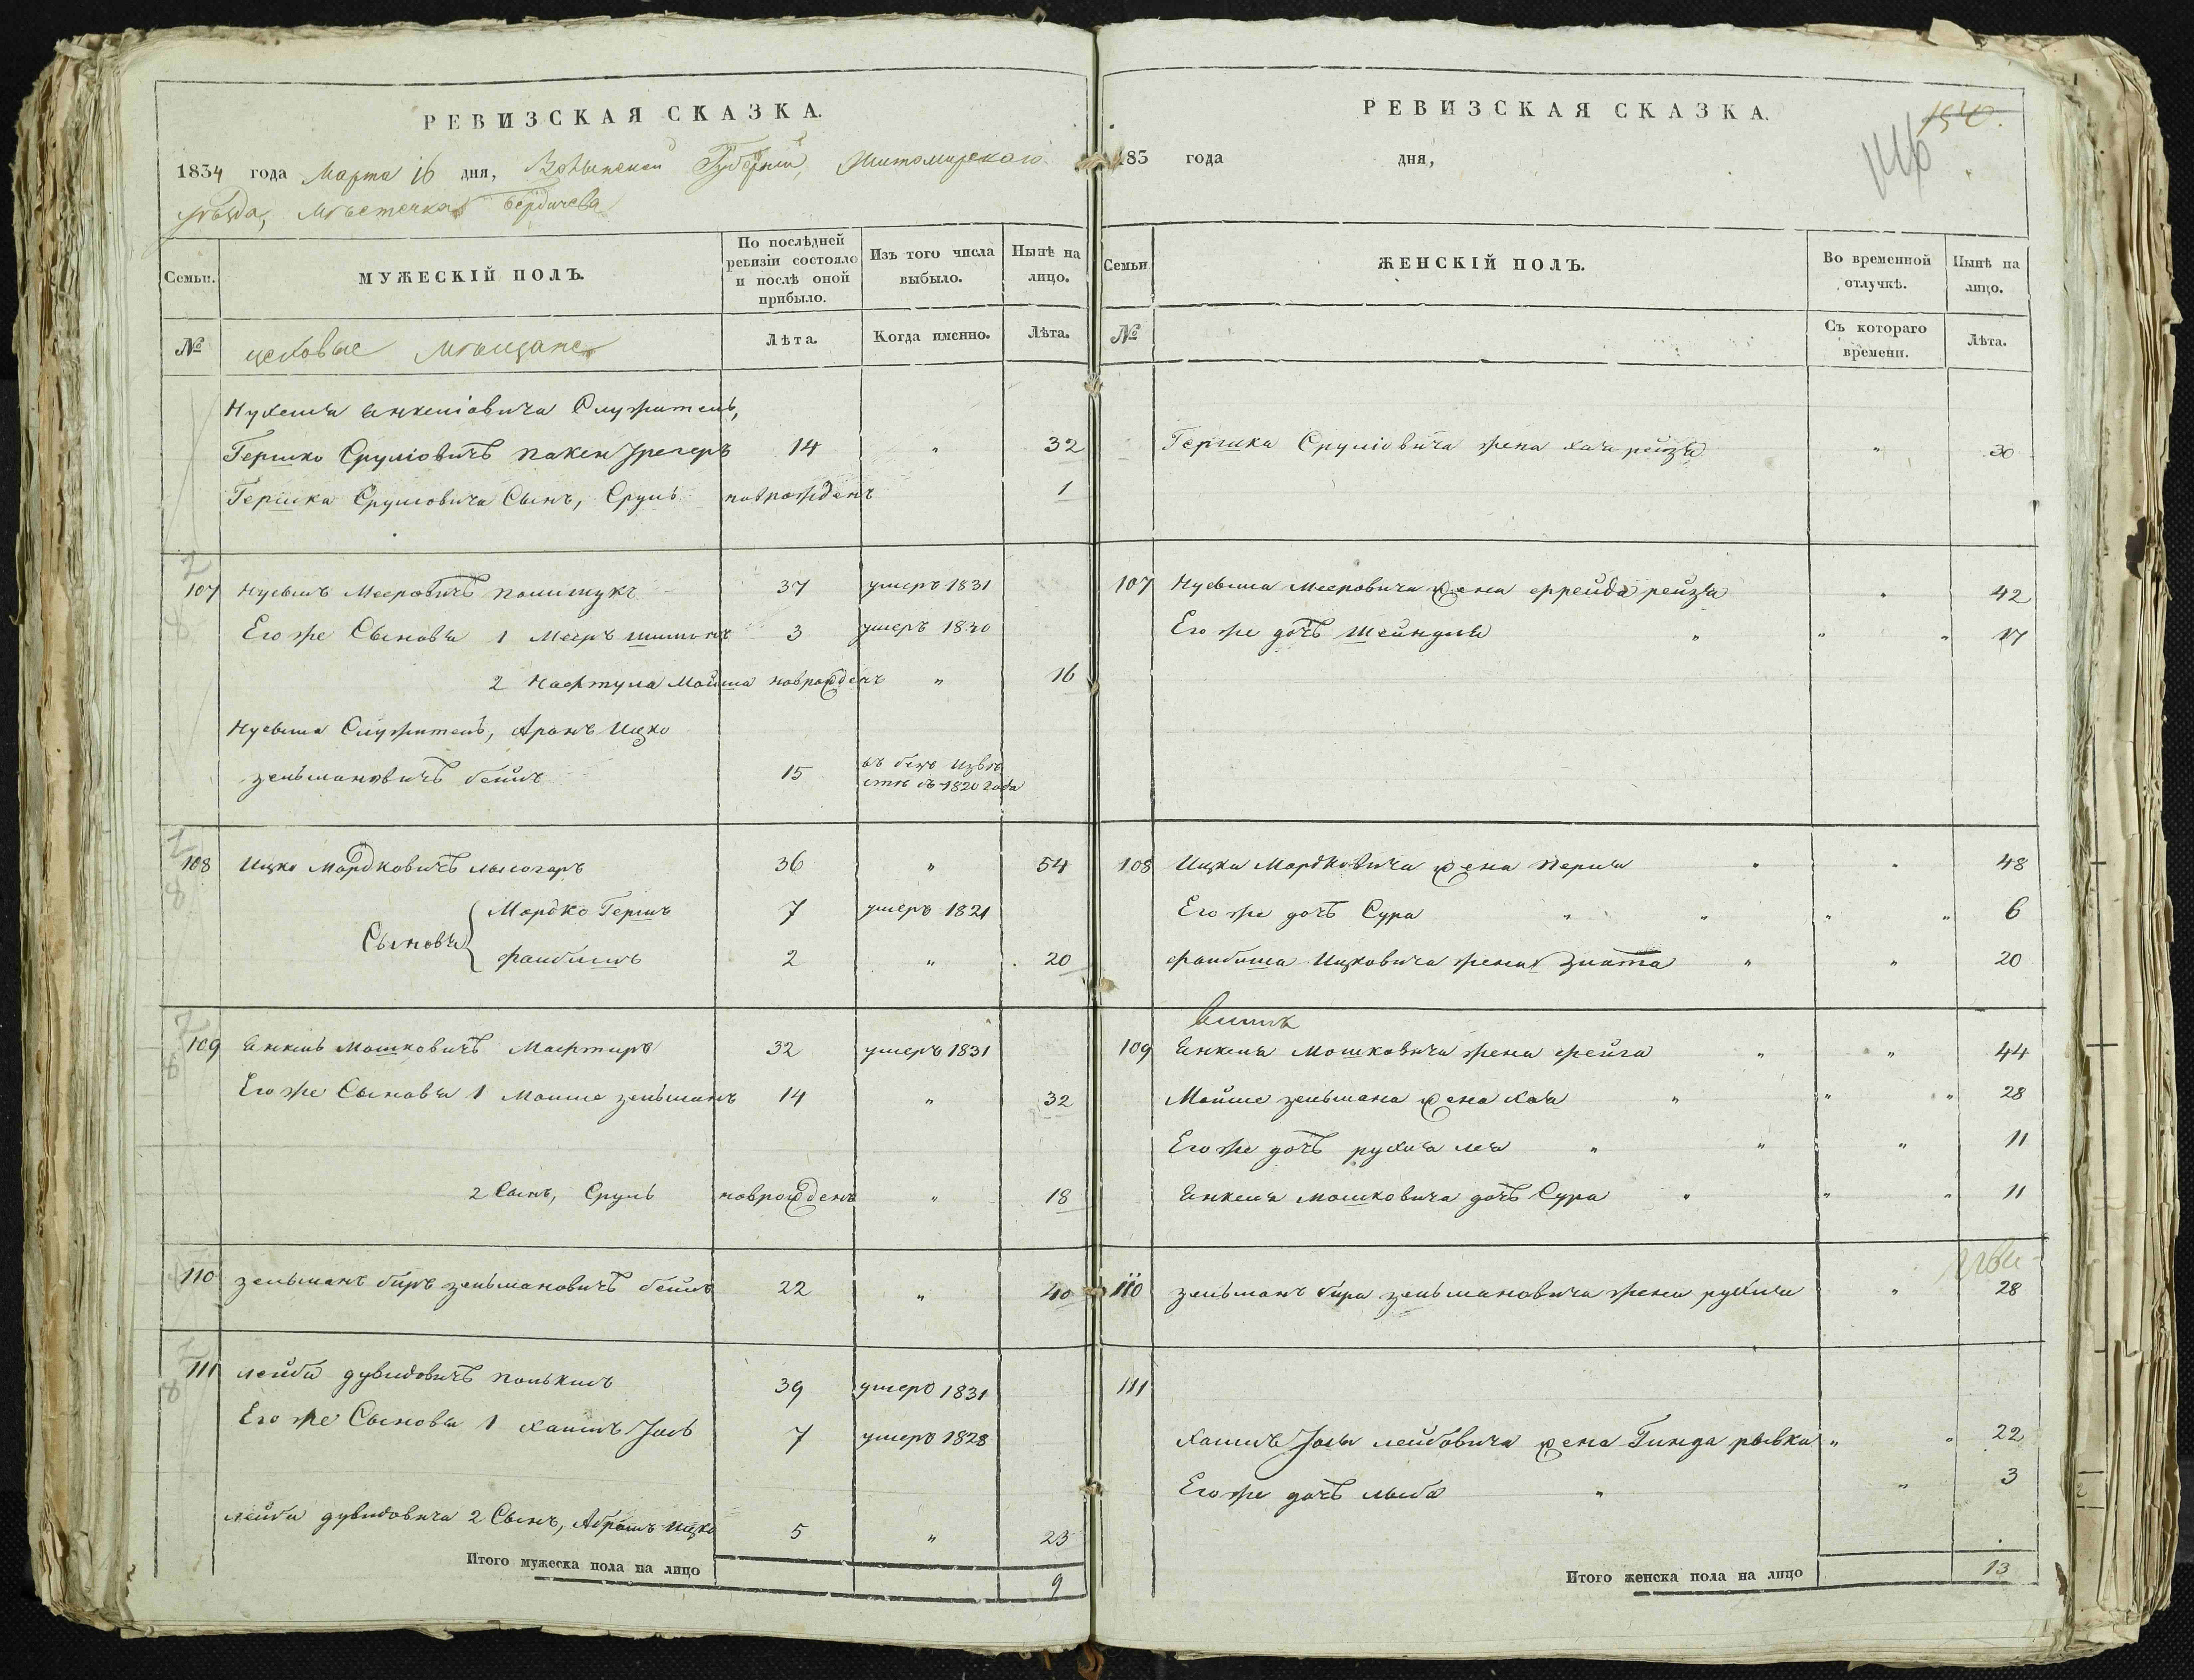 РЕВИЗСКАЯ СКАЗКА.
1834 года Марта 16 дня, Волынской Губерніи, Житомирскаго
уѣзда, Мѣстечка Бердичева
Семьи.
МУЖЕСКІЙ ПОЛЪ.
По послѣдней ревизіи состояло и послѣ оной прибыло.
Изъ того числа выбыло.
Нынѣ на лицо.
№
цеховые Мѣщане
Лѣта.
Когда именно.
Лѣта.
Нухима Янкеліовича Служитель,
Гершко Сруліовичъ 14 " 32
Гершка Сруліовича Сынъ, Сруль новрожденъ 1
107 Нусымъ Мееровичъ полищукъ 37 умеръ 1831
Его же Сыновья 1 Мееръ шимонъ 3 умеръ 1830
2 Нафтула Мойша новрожденъ " 16
Нусыма Служитель, Аронъ Ицко
зельмановичъ беймъ 15 въ безъ извѣстнѣ съ 1820 года
108 Ицко Мордковичъ 36 " 54
Сыновья Мордко Гершъ 7 умеръ 1821
фаибишъ 2 " 20
109 Янкель Мошковичъ Мафтиръ 32 умеръ 1831
Его же Сыновья 1 Моише зельманъ 14 " 32
2 Сынъ, Сруль новрожденъ " 18
110 зельманъ биръ зельмановичъ беймъ 22 " 40
111 лейба дувидовичъ 39 умеръ 1831
Его же Сыновья 1 хаимъ Іоль 7 умеръ 1828
лейба дувидовича 2 Сынъ, Абрамъ Ицко 5 " 23
Итого мужеска пола на лицо 9
РЕВИЗСКАЯ СКАЗКА.
150.
146
183 года дня,
Семьи
ЖЕНСКІЙ ПОЛЪ.
Во временной отлучкѣ.
Нынѣ на лицо.
№
Съ котораго времени.
Лѣта.
Гершка Сруліовича жена хая рейзя " 30
107 Нусыма Мееровича жена фрейда рейзя " 42
Его же дочъ Шейндля " " " 17
108 Ицка Мордковича жена перля " " 48
Его же дочъ Сура " " " " 6
фаибиша Ицковича жена Злата " " 20
109 Янкеля Мошковича жена фейга " " " 44
Мойше зельмана жена хая " " " 28
Его же дочъ рухля лея " " " 11
Янкеля мошковича дочъ Сура " " " 11
110 зельманъ бира зельмановича жена рухля " 28
111
хаимъ Іоля лейбовича жена Гинда рывка " " 22
Его же дочъ лыба " " 3
Итого женска пола на лицо 13